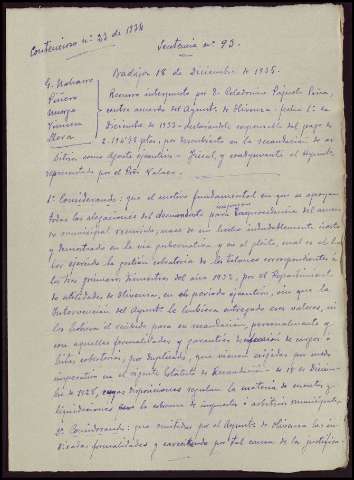 Contencioso nº 23 de 1934
Sentencia nº 93.
Badajoz 18 de Diciembre de 1935.
G. Navarro
Piñero
Murga
Viniera
Llera
Recurso interpuesto por D. Celedonio Piriz Peña,
contra acuerdo del Ayunto. de Olivenza - fecha 1º de
Diciembre de 1933 - declarándole responsable del pago de
ptas, por descubierto en la recaudación de ar-
bitrios como Agente ejecutivo - Fiscal, y coadyuvante el Ayunto
representado por el Proc.
1º Considerando: que el motivo fundamental en que se apoyan
todas las alegaciones del demandante improcedencia del acuer-
do municipal recurrido, nace de un hecho indudablemente cierto
y demostrado en la via gubernativa y en el pleito, cual es el ha-
ber ejercido la gestión cobratoria de los talones correspondientes á
los tres primeros trimestres del año 1932, por el Repartimiento
de utilidades de Olivenza, en el período ejecutivo, sin que la
Intervención del Ayunto le hubiera entregado con valores, ni
los hubiera él recibido para su recaudación, personalmente y
con aquellas formalidades y garantías de cargos ó
listas cobratorias, por duplicado, que vienen exigidas por modo
imperativo en el vigente Estatuto de Recaudación de 18 de Diciem-
bre de 1928, cuyas disposiciones regulan la materia de cuentas y
liquidaciones la cobranza de impuestos ó arbitrios municipales
2º Considerando: que omitidas por el Ayunto de Olivenza las in-
dicadas formalidades y careciendo por tal causa de la justifica-